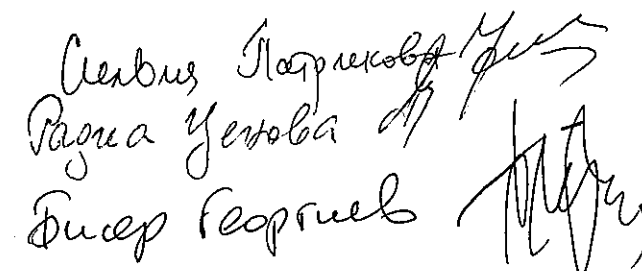 Силвия Патрикова
Радка Ценова
Бисер Георгиев